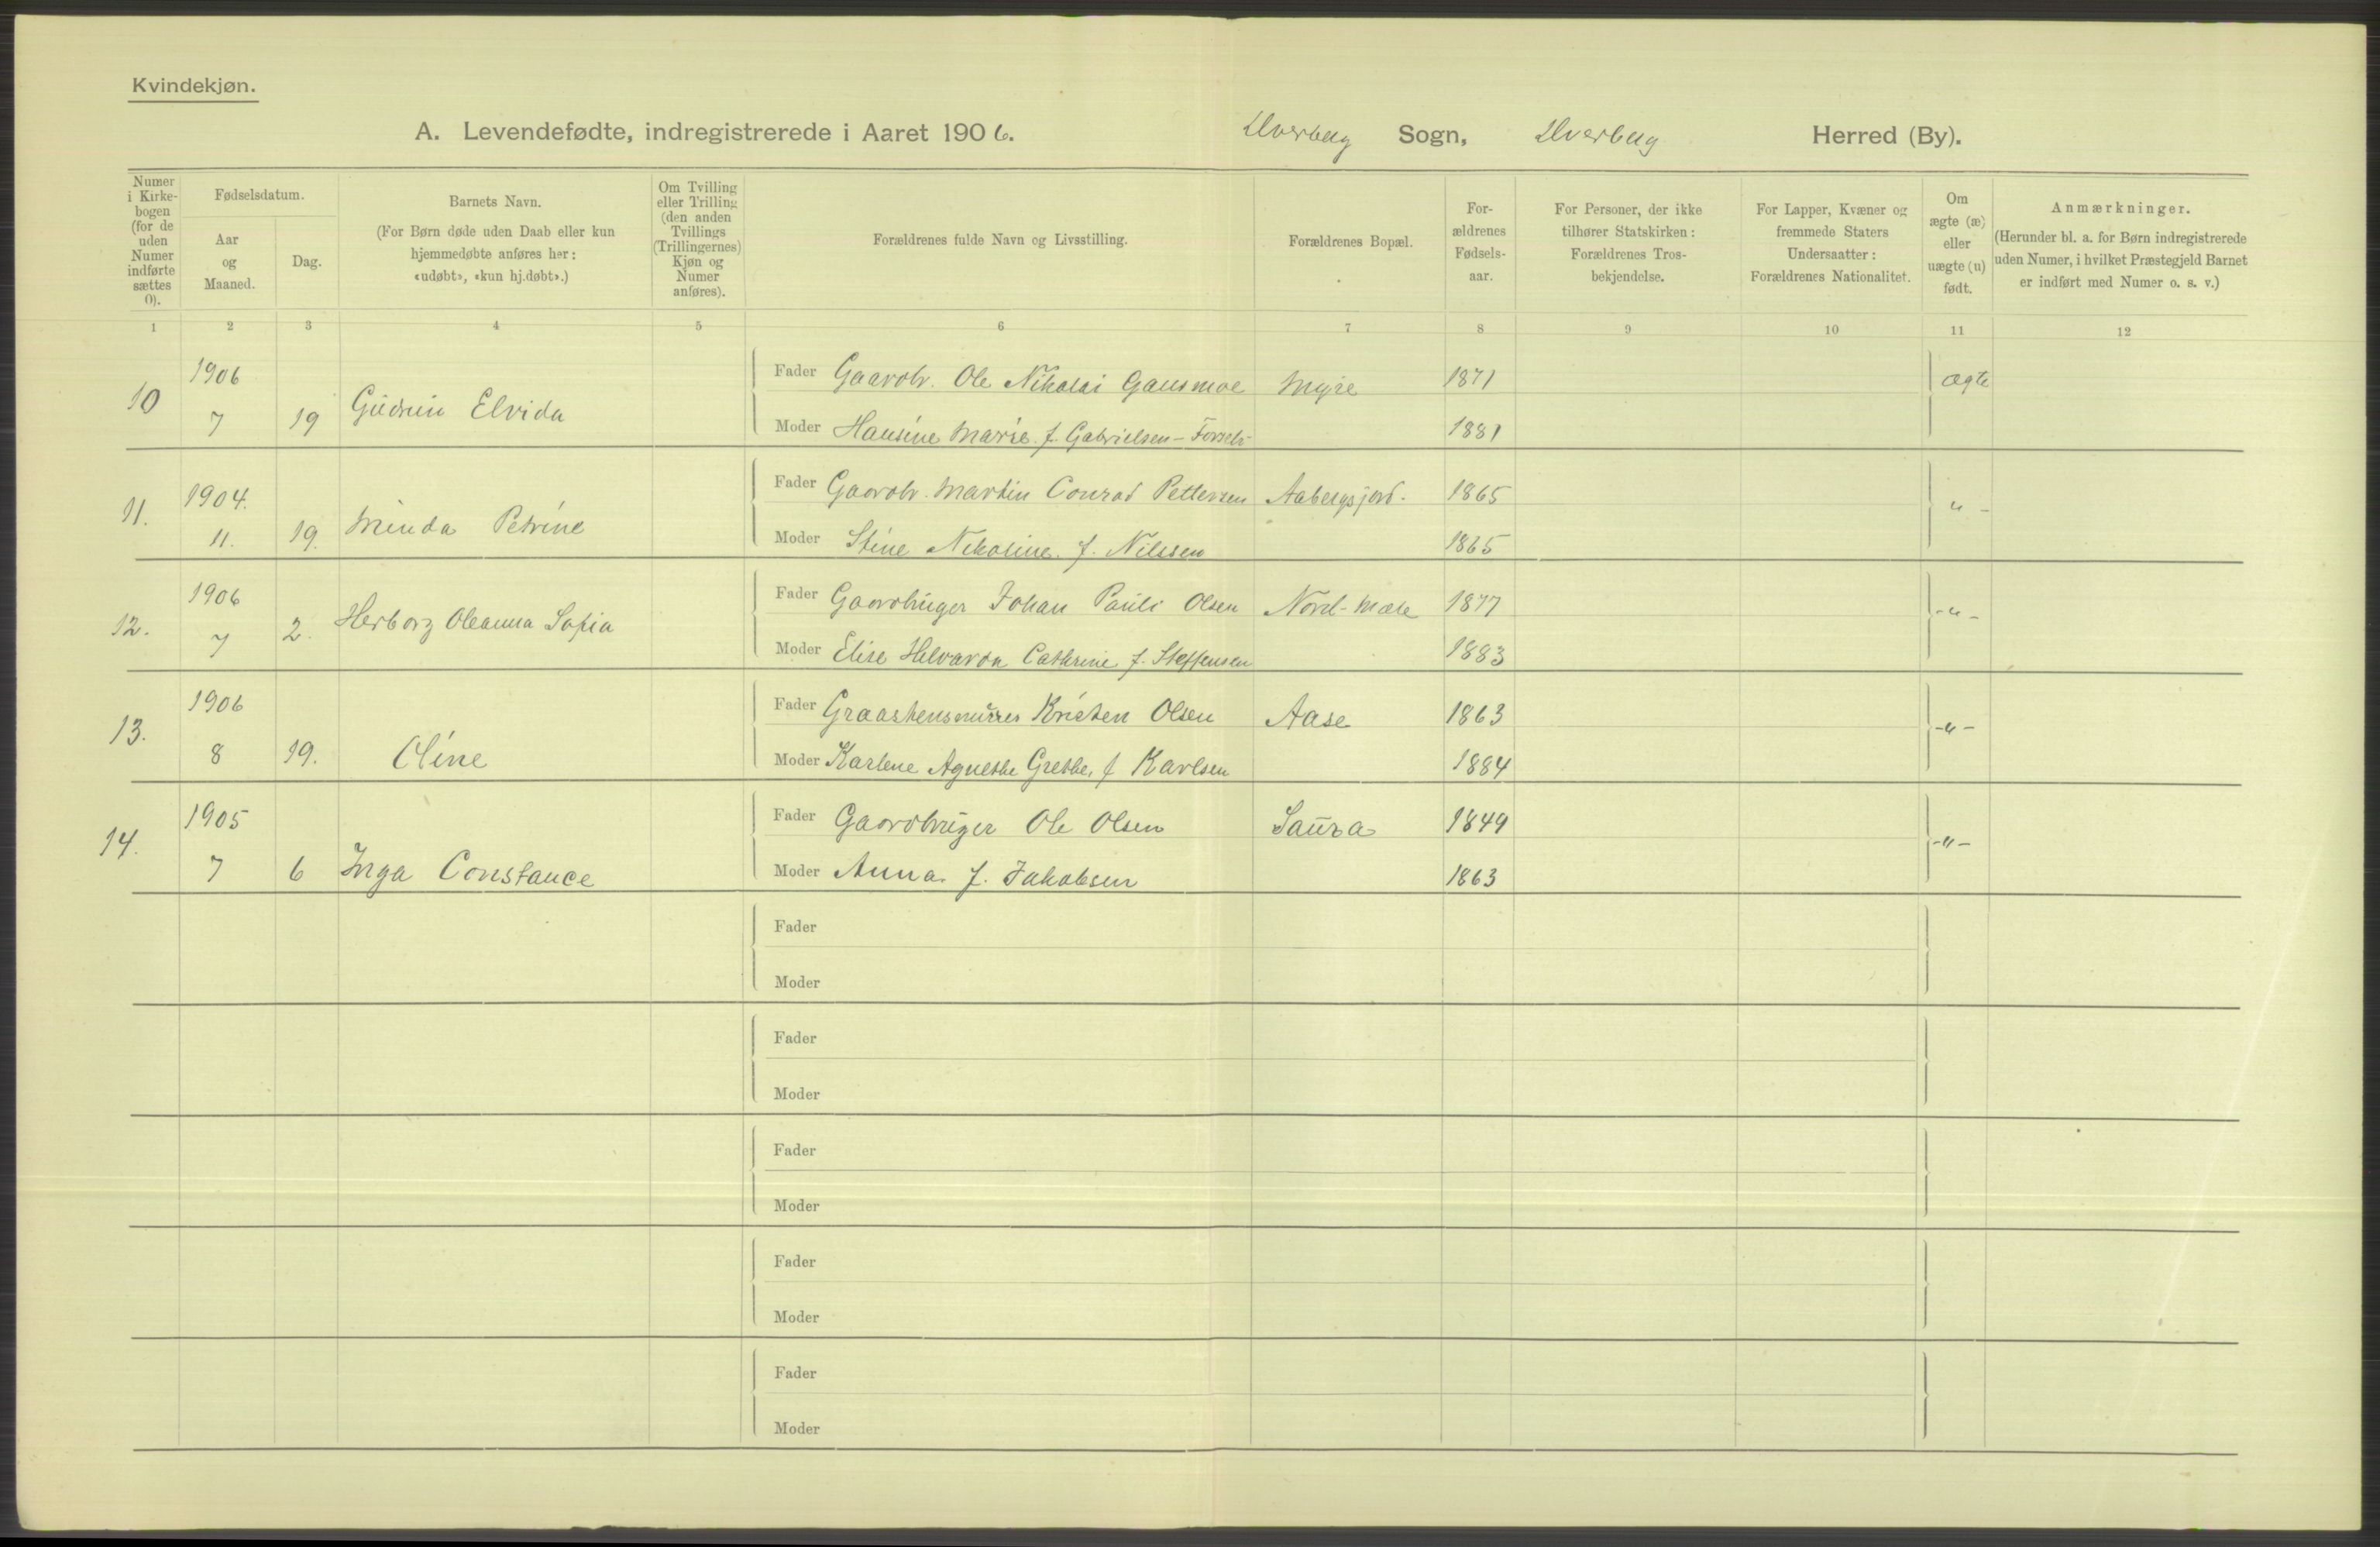 Kvindekjøn.
A. Levendefødte, indregistrerede i Aaret 1906. Dverberg Sogn, Dverberg Herred (By).
Numer i Kirkebogen (for de uden Numer indførte sættes 0).
Fødselsdatum.
Aar og Maaned.
Dag.
Barnets Navn.
(For Børn døde uden Daab eller kun
hjemmedøbte anføres her:
«udøbt», «kun hj.døbt».)
Om Tvilling
eller Trilling
(den anden
Tvillings
(Trillingernes)
Kjøn og
Numer
anføres).
Forældrenes fulde Navn og Livsstilling.
Forældrenes Bopæl.
For-
ældrenes
Fødsels-
aar.
For Personer, der ikke
tilhører Statskirken:
Forældrenes Tros-
bekjendelse.
For Lapper, Kvæner og
fremmede Staters
Undersaatter:
Forældrenes Nationalitet.
Om
ægte (æ)
eller
uægte (u)
født.
Anmærkninger.
(Herunder bl. a. for Børn indregistrerede
uden Numer, i hvilket Præstegjeld Barnet
er indført med Numer o. s. v.)
1 2 3 4 5 6 7 8 9 10 11 12
1906 Fader Gaardbr. Ole Nikolai Gausmoe Myre 1871 ægte
10 7 19 Gudrun Elvida
Moder Hansine Marie. f. Gabrielsen - 1881
1904. Fader Gaardbr. Martin Conrad Pettersen Aabergsjord. 1865 " -
11. 11. 19. Minda Petrine
Moder Stine Nikoline. f. Nilssen 1865
1906 Fader Gaardbruger Johan Pauli Olsen Nord-Mæle 1877 -"-
12. 7 2. Herborg Oleanna Sofia
Moder Elise Helvarda Cathrine f. Steffensen 1883
1906 Fader Graastensmurer Kristen Olsen Aase 1863 -"-
13. 8 19. Oline
Moder Karlene Agnethe Grethe, f Karlsen 1884
1905 Fader Gaardbruger Ole Olsen Saura 1849 -"-
14. 7 6 Inga Constance
Moder Anna f. Jakobsen 1863
Fader
Moder
Fader
Moder
Fader
Moder
Fader
Moder
Fader
Moder